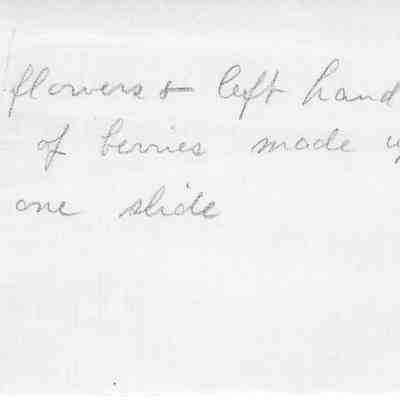 flowers & left hand
of berries made up
one slide